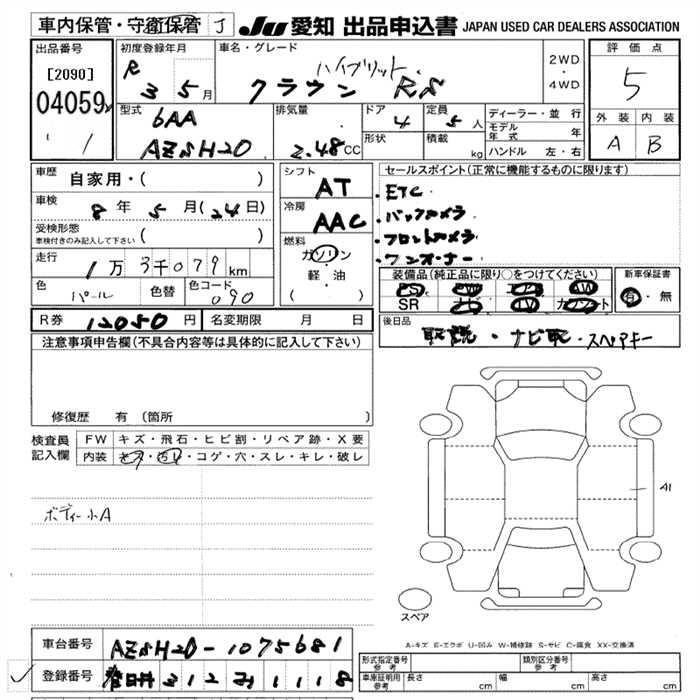 車内保管・守衛保管 J JU 愛知 出品申込書 JAPAN USED CAR DEALERS ASSOCIATION
出品番号 初度登録年月 車名・グレード 評価点
[2090] R 3 5月 クラウン ハイブリット RS 2WD・4WD 5
04059 型式 排気量 ドア 定員 ディーラー・並行 外装 内装
1 6AA 4 5人 モデル年式 年 A B
AZSH20 2.48CC 形状 積載 kg ハンドル 左・右
車歴 自家用・( ) シフト AT セールスポイント(正常に機能するものに限ります)
車検 8年5月(24日) 冷房 AAC ・ETC
受検形態 ( ) ・バックカメラ
車検付きのみ記入して下さい 燃料 ・フロントカメラ
走行 1万3千079km ガソリン ・ワンオーナー
色 パール 色替 色コード 090 軽・油 装備品(純正品に限り○をつけてください) 新車保証書
( ) PS PW エアB AW 有・無
SR ナビ TV カワシート
R券 12050円 名変期限 月 日 後日品
注意事項申告欄(不具合内容等は具体的に記入して下さい) 取説・ナビ取・スペアキー
修復歴 有 (箇所 )
検査員 FW キズ・飛石・ヒビ割・リペア跡・X要
記入欄 内装 キズ・汚レ・コゲ・穴・スレ・キレ・破レ
A1
ボディー小A
スペア
A-キズ E-エクボ U-凹み W-補修跡 S-サビ C-腐食 XX-交換済
車台番号 AZSH20-1075681
登録番号 春日井 312 1118
形式指定番号 参考 類別区分番号 参考
車庫証明用 参考 長さ cm 幅 cm 高さ cm